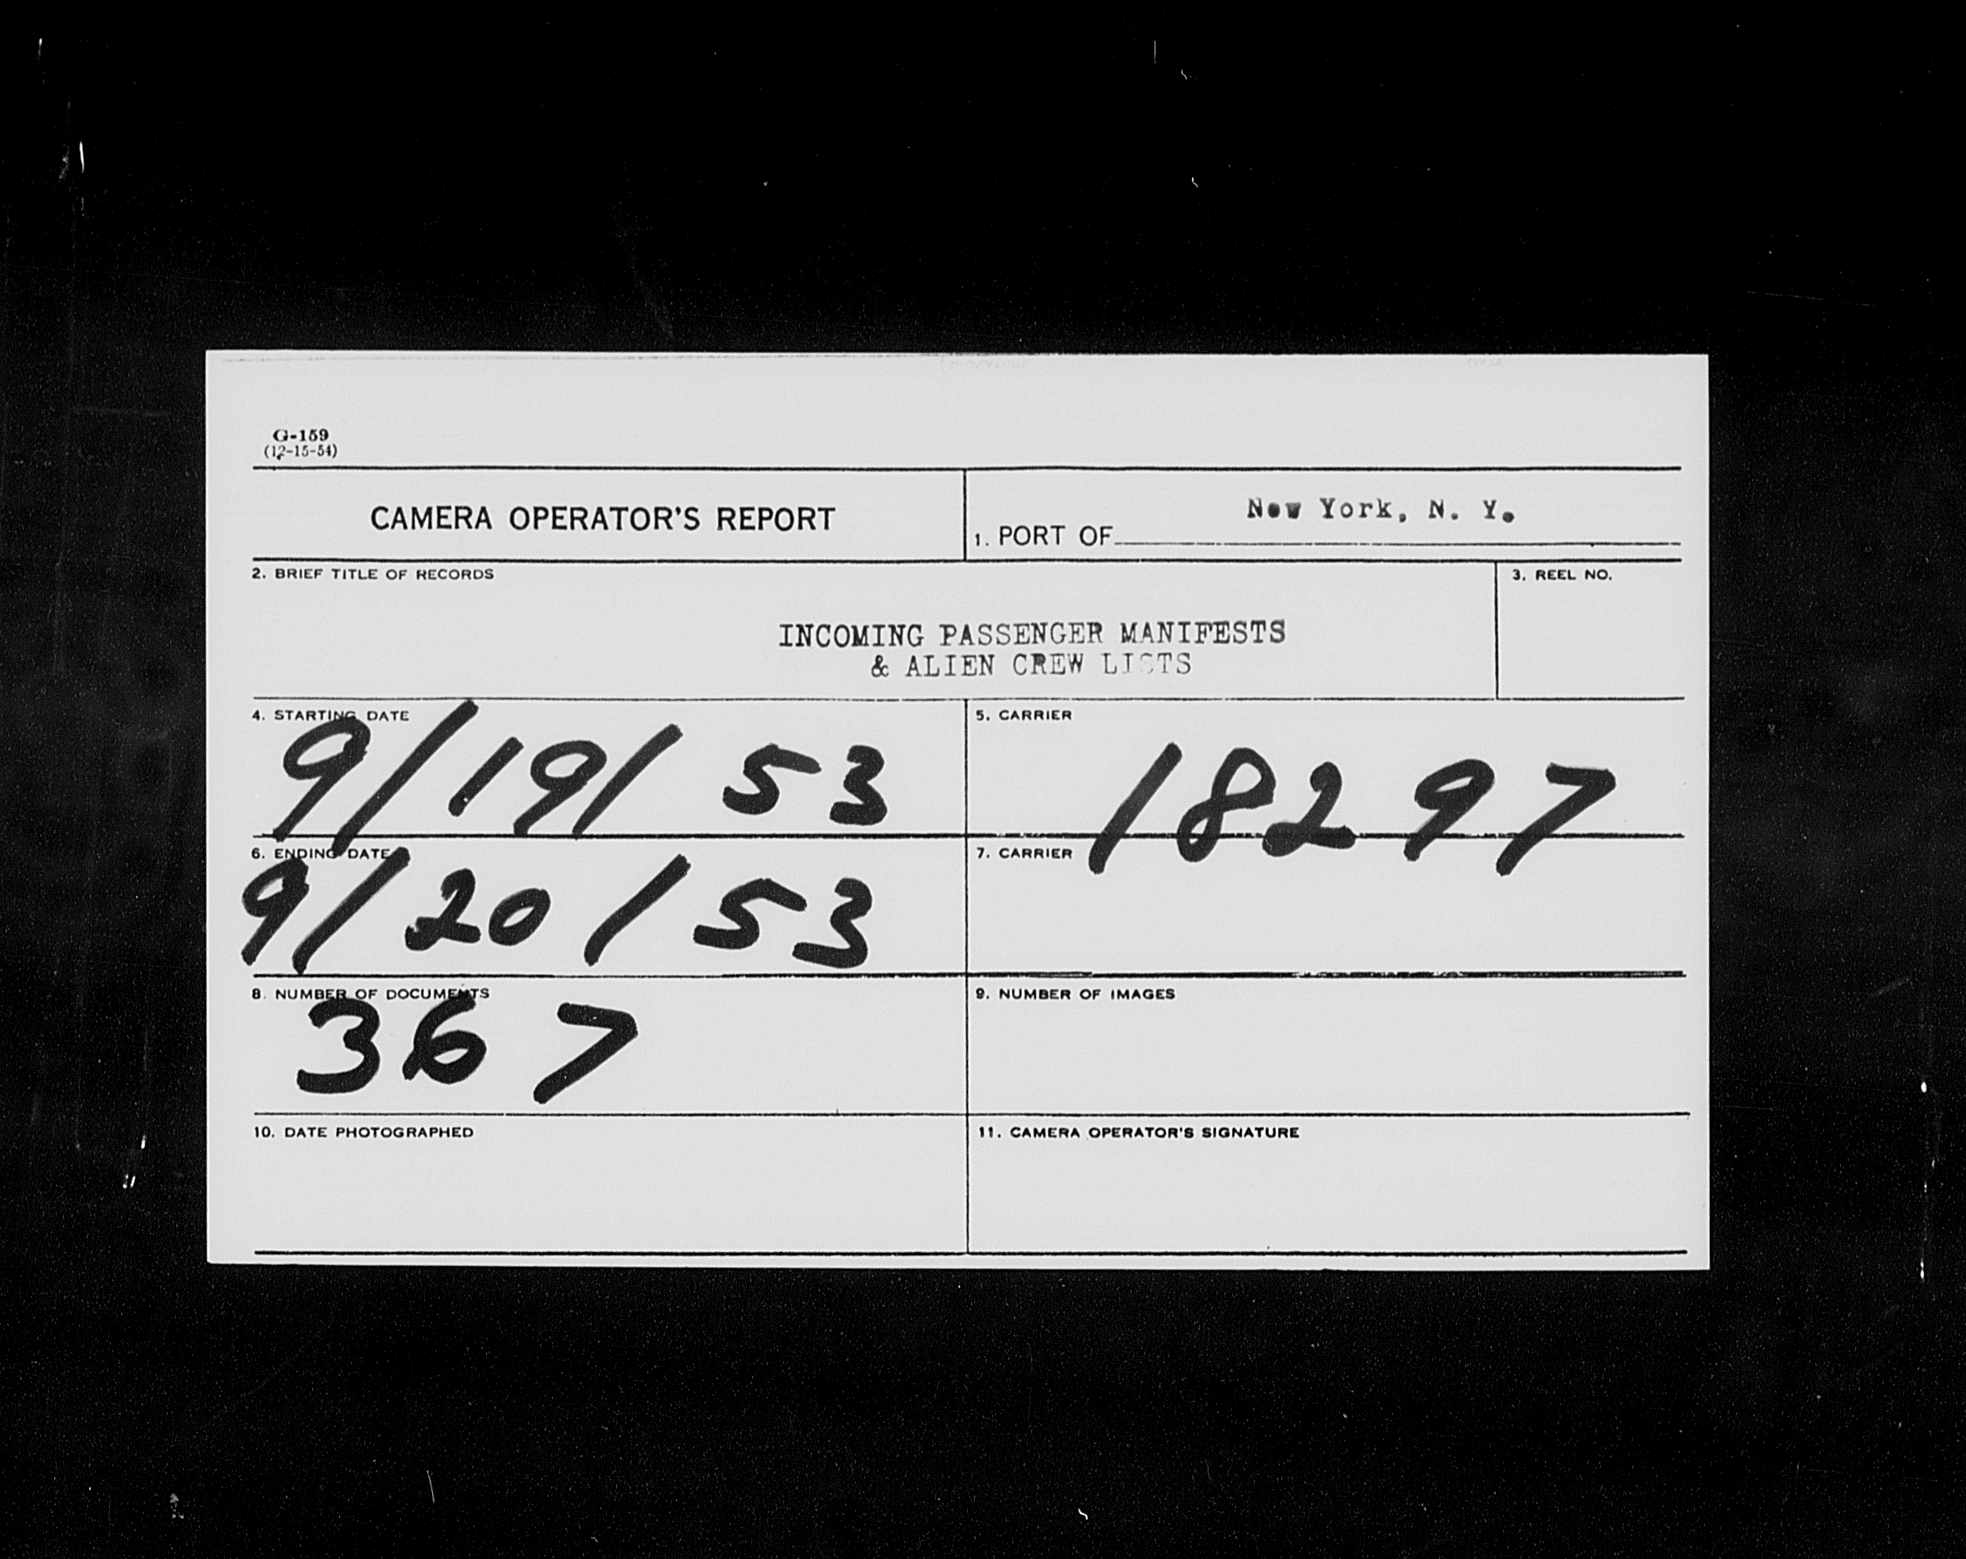 G-159
(12-15-54)
CAMERA OPERATOR'S REPORT
1. PORT OF New York, N. Y.
2. BRIEF TITLE OF RECORDS
3. REEL NO.
INCOMING PASSENGER MANIFESTS
& ALIEN CREW LISTS
4. STARTING DATE
9/19/53
5. CARRIER
18297
6. ENDING DATE
9/20/53
7. CARRIER
8. NUMBER OF DOCUMENTS
367
9. NUMBER OF IMAGES
10. DATE PHOTOGRAPHED
11. CAMERA OPERATOR'S SIGNATURE